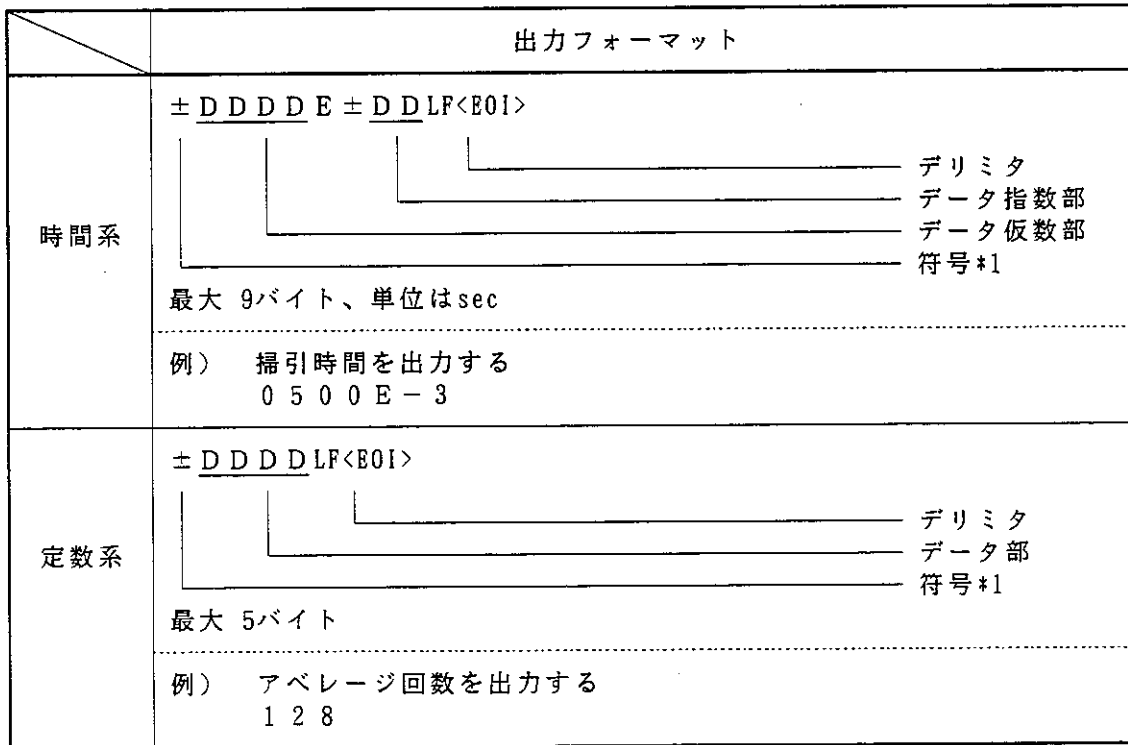 出力フォーマット
時間系
±DDDDE±DDLF<EOI>
デリミタ
データ指数部
データ仮数部
符号*1
最大 9バイト、単位はsec
例） 掃引時間を出力する
0500E-3
定数系
±DDDDLF<EOI>
デリミタ
データ部
符号*1
最大 5バイト
例） アベレージ回数を出力する
128